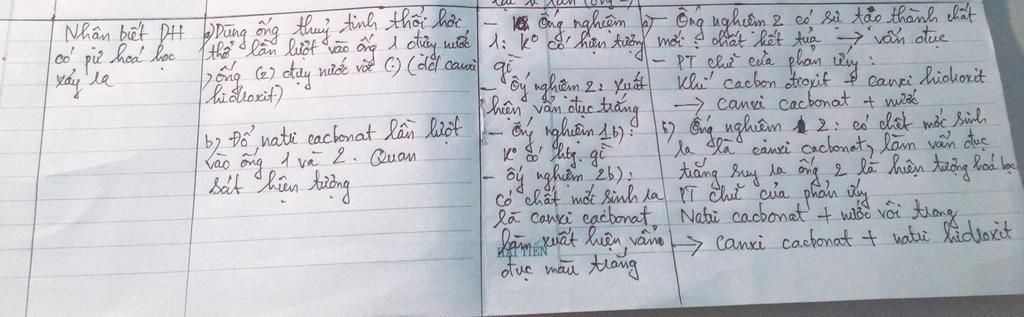 Nhân biết DH
có pư hoá học
xảy ra
a) Dùng ống thuỷ tinh thổi hơi
thổ lần lượt vào ống 1 đựng nước
, ống (2) đựng nước vôi (:) (dd canxi
hiđroxit)
b) Đổ natri cacbonat lần lượt
vào ống 1 và 2. Quan
sát hiện tượng
- Ống nghiệm
1: K° có hiện tượng
gì
- Ốy nghiệm 2: Xuất
hiện vẩn đục trắng
- Ốny nghiệm 1b):
K° có htg. gì
- Ốy nghiệm 2b):
có chất mới sinh ra
là canxi cacbonat
làm xuất hiện vẩn
HẢI TIẾN
đục màu trắng
a) - Ống nghiệm 2 có sự tạo thành chất
mới: chất kết tủa → vẩn đục
- PT chữ của phản ứng:
Khí cacbon đioxit + canxi hiđroxit
→ canxi cacbonat + nước
b) Ống nghiệm 2: có chất mới sinh
ra là canxi cacbonat, làm vẩn đục
trắng suy ra ống 2 là hiện tượng hoá học
PT chữ của phản ứng
Natri cacbonat + nước vôi trong
→ canxi cacbonat + natri hiđroxit